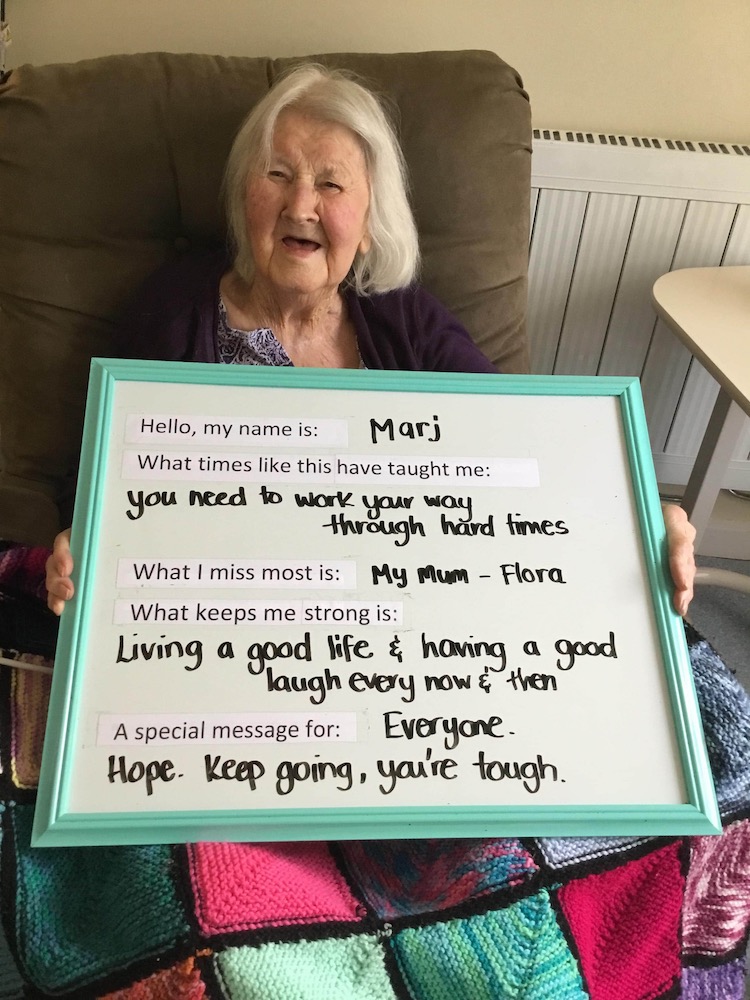 Hello, my name is: Marj
What times like this have taught me:
you need to work your way
through hard times
What I miss most is: My Mum - Flora
What keeps me strong is:
Living a good life & having a good
laugh every now & then
A special message for: Everyone.
Hope. Keep going, you're tough.